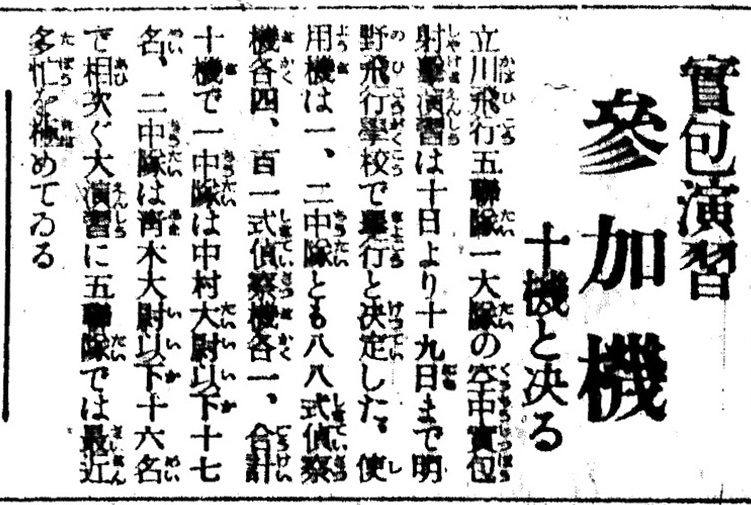 實包演習
參加機
十機と决る
立川飛行五聯隊一大隊の空中實包
射擊演習は十日より十九日まで明
野飛行學校で擧行と决定した、使
用機は一、二中隊とも八八式偵察
機各四、百一式偵察機各一、合計
十機で一中隊は中村大尉以下十七
名、二中隊は靑木大尉以下十六名
で相次ぐ大演習に五聯隊では最近
多忙を極めてゐる